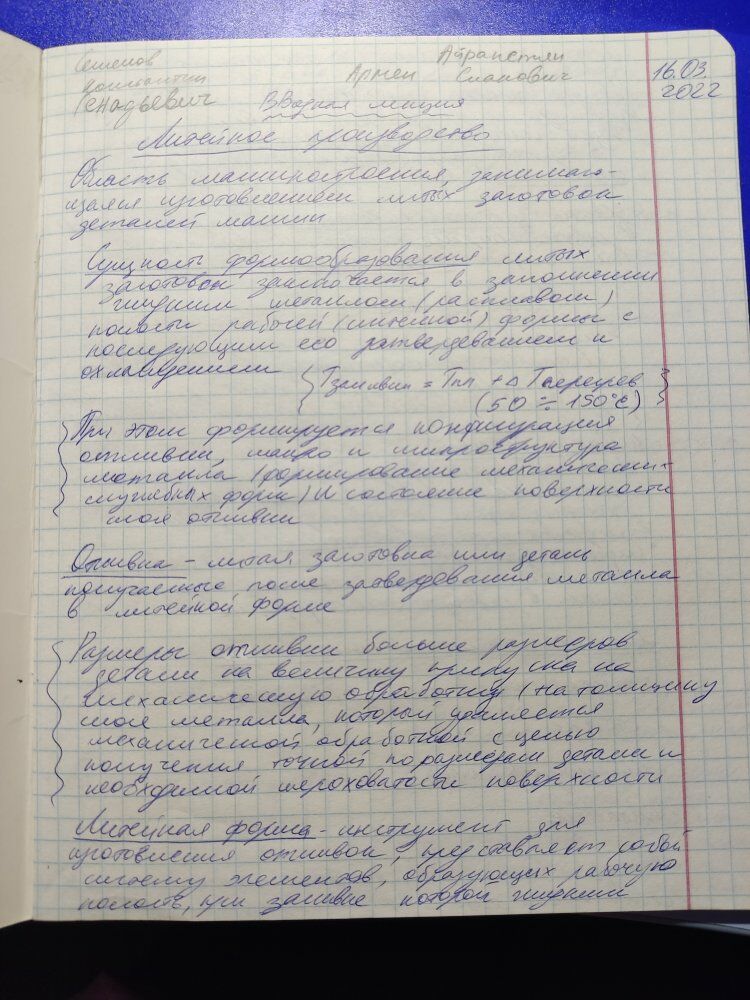 Семенов
Константин
Генадьевич
Айрапетян
Армен Слапович
16.03.
2022
ВВодная лекция
Литейное производство
Область машиностроения, занимаю-
щаяся изготовлением литых заготовок
деталей машин
Сущность формообразования литых
заготовок заключается в заполнении
жидким металлом (расплавом)
полости рабочей (литейной) формы с
последующим его затвердеванием и
охлаждением
Тзаливки = Тпл + Δ Tперегрев
(50 ÷ 150°C)
При этом формируется конфигурация
отливки, макро и микроструктура
металла (формирование металических
служебных форм) и состояние поверхности
слоя отливки
Отливка - литая заготовка или деталь
получаемые после затвердевания металла
в литейной форме
Размеры отливки больше размеров
детали на величину припуска на
механическую обработку (на толщину
слоя металла, который удаляется
механической обработкой с целью
получения точной по размерам детали и
необходимой шероховатости поверхности
Литейная форма - инструмент для
изготовления отливок, представляет собой
систему элементов, образующих рабочую
полость, при заливке которой жидким